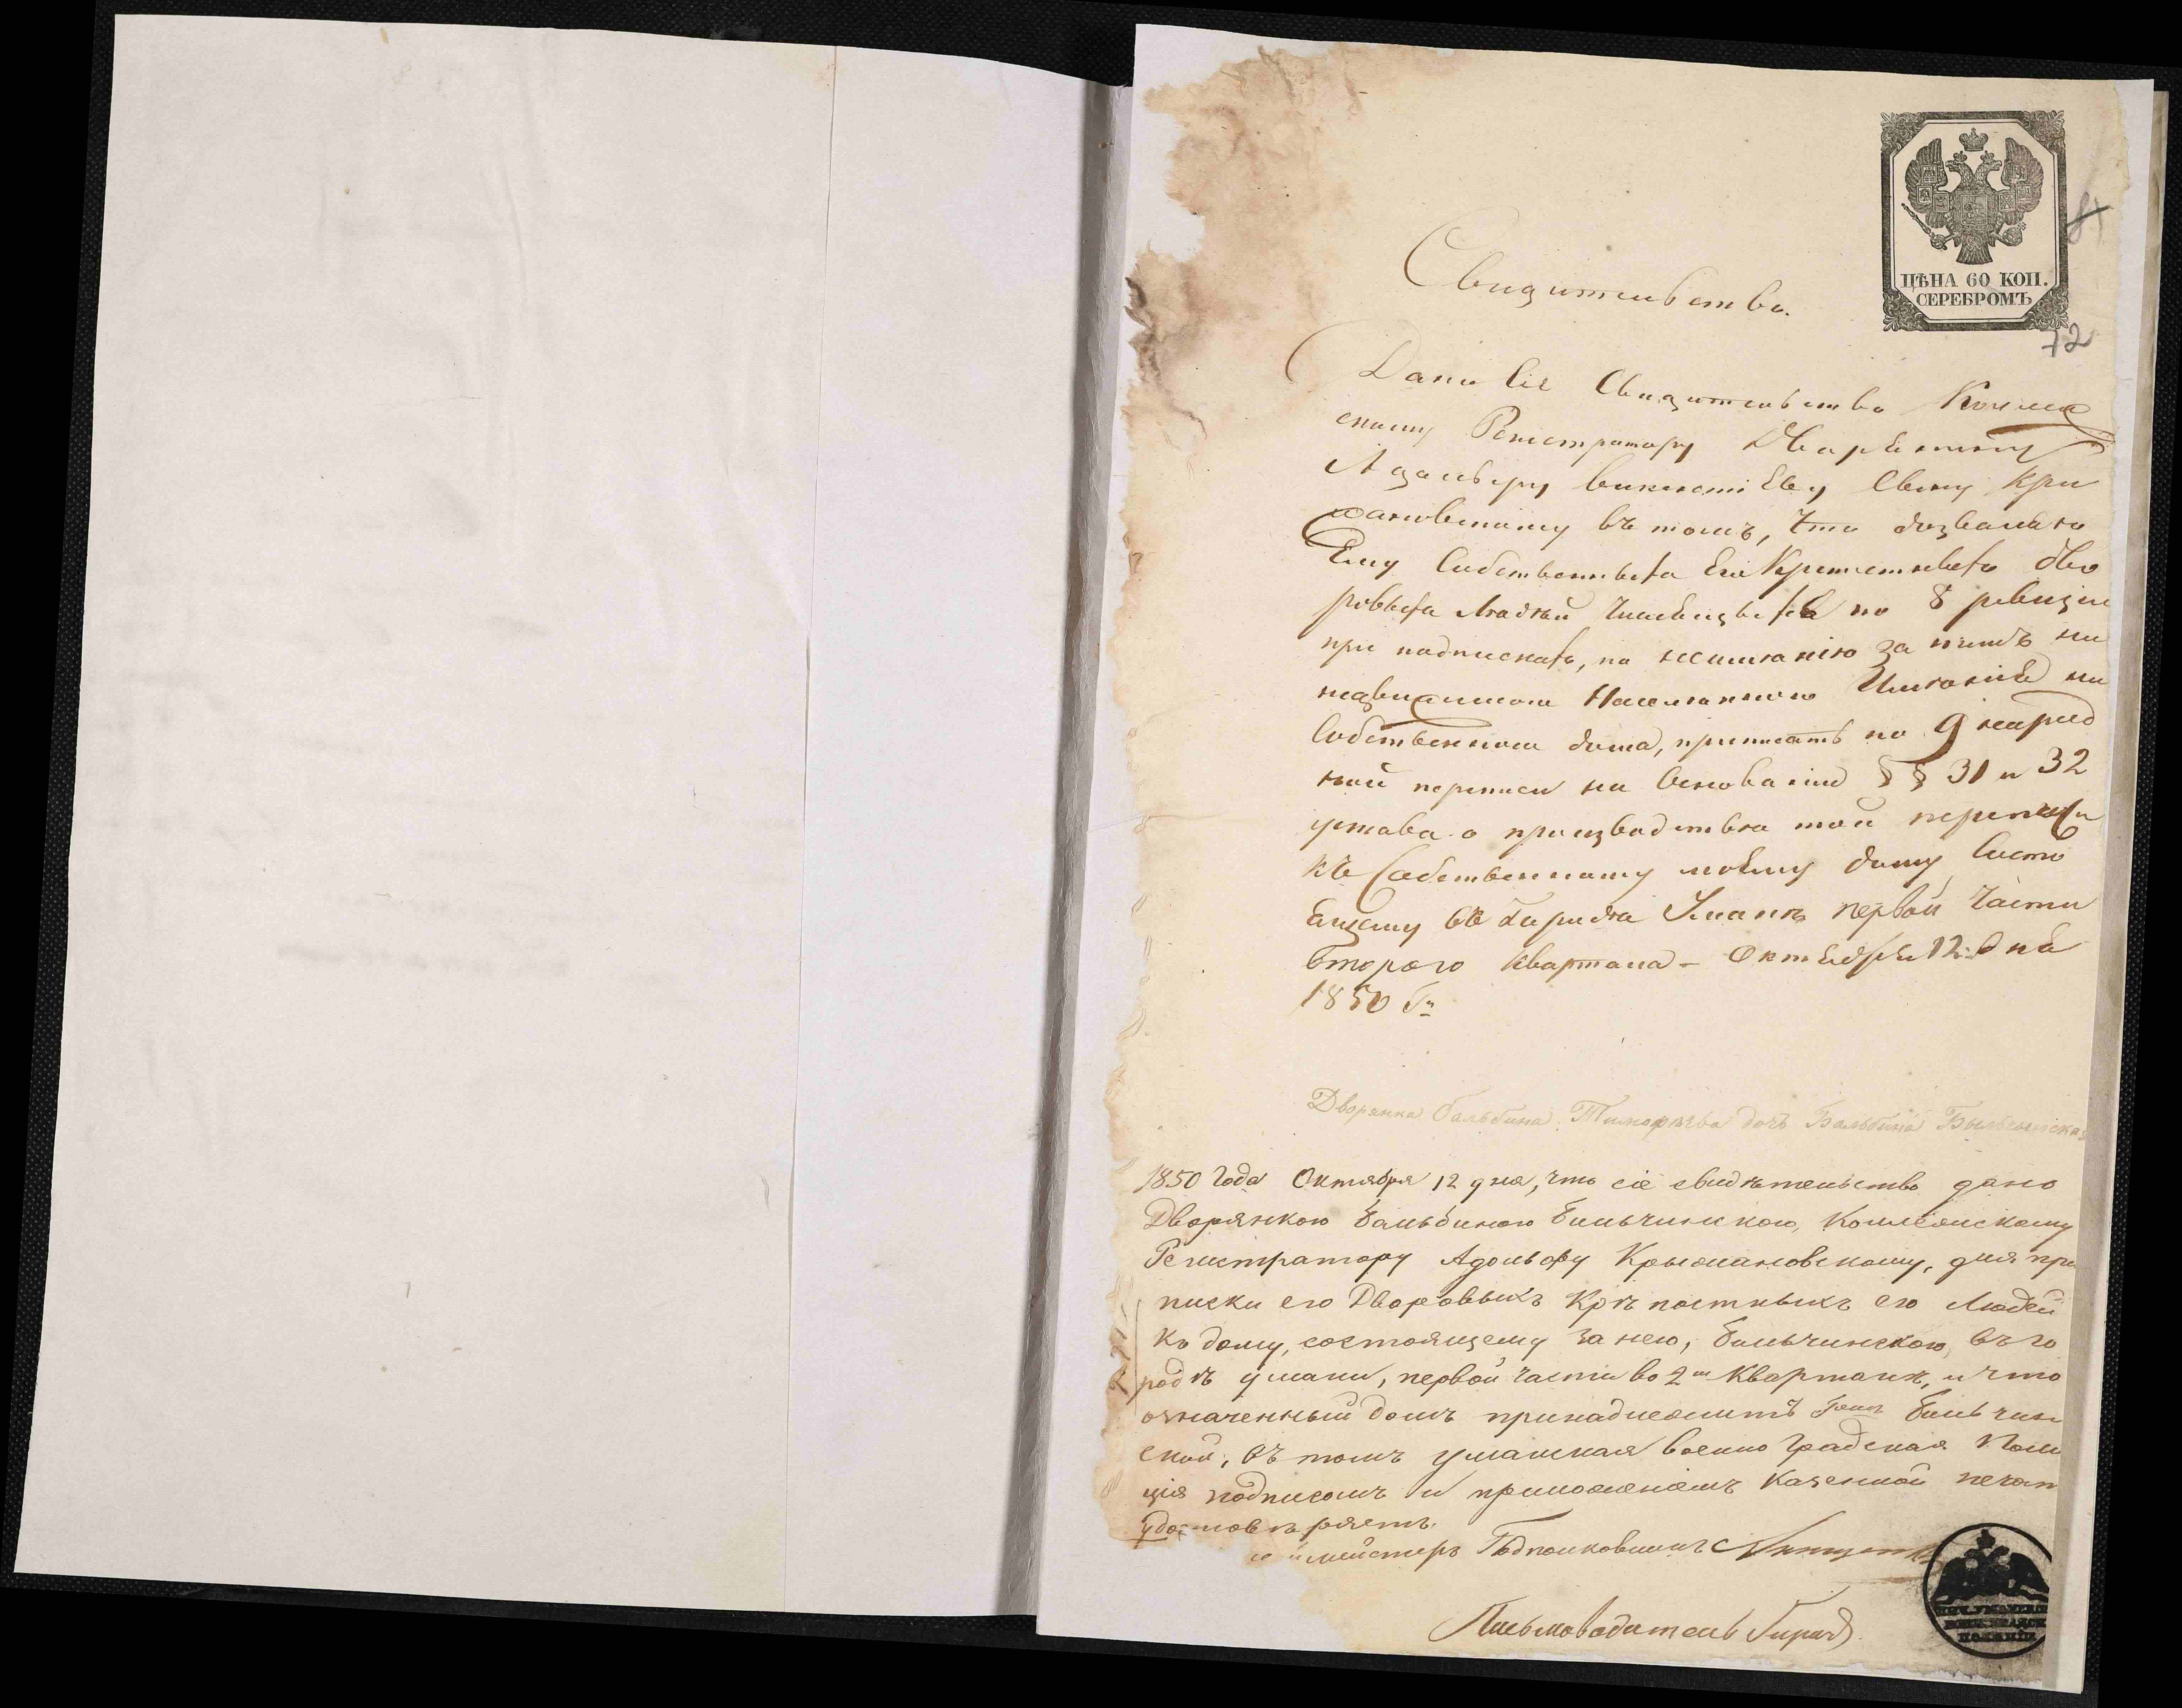 ЦѢНА 60 КОП.
СЕРЕБРОМЪ
72
Свидительство.
Дано Сіе Свидительство Колеж
скому Регистратору Дворянину
Адольфу Викентіеву Сыну Кри
жановскому въ томъ, что дозваляю
Ему Собственныхъ Его Крепостныхъ дво
ровыхъ Людей по 8 ревизіи
при подпискахъ, по неиманію за нимъ ни
недвижимаго Населеннаго Именія ни
Собственнаго дома, приписать по 9 народ
ной переписи на Основаніи §§ 31 и 32
устава о производстве той переписи
къ Собственному моему дому, Состо
ящему въ Городе Умане первой части
второго квартала – Октября 12 дня
1850 Го
Дворянка Бальбина дочь Бальбина
1850 года Октября 12 дня, что сіе свидѣтельство дано
Дворянкою Бальбиною Бильчинскою, Коллежскому
Регистратору Адольфу Крыжановскому, для при
писки его Дворовыхъ Крѣпостныхъ его Людей
къ дому, состоящему за нею, Бильчинскою, въ го
родѣ Умани, первой части во 2м Кварталѣ, и что
означенный домъ принадлежитъ Бильчин
ской, въ томъ Уманская Военно Градская Поли
ція подписомъ и приложеніемъ казенной печати
удостовѣряетъ.
мейстеръ Подполковникъ
Письмоводитель
ПОЛИЦІИ